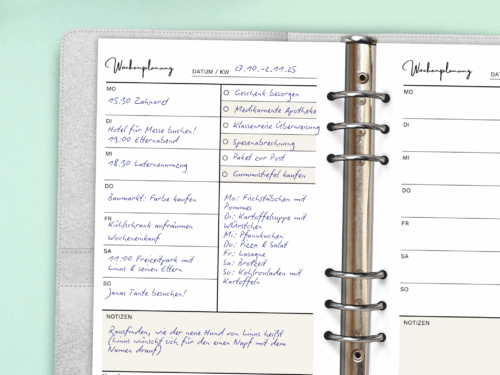 Wochenplanung
DATUM / KW 27.10.-2.11.25
MO
15:30 Zahnarzt
DI
Hotel für Messe buchen!
19:00 Elternabend
MI
18:30 Laternenumzug
DO
Baumarkt: Farbe kaufen
FR
Kühlschrank aufräumen
Wocheneinkauf
SA
11:00 Freizeitpark mit
Linus & seinen Eltern
SO
Janas Tante besuchen!
Geschenk besorgen
Medikamente Apotheke
Klassenreise Überweisung
Spesenabrechnung
Paket zur Post
Gummistiefel kaufen
Mo: Fischstäbchen mit
Pommes
Di: Kartoffelsuppe mit
Würstchen
Mi: Pfannkuchen
Do: Pizza & Salat
Fr: Lasagne
Sa: Brotzeit
So: Kohlrouladen mit
Kartoffeln
NOTIZEN
Rausfinden, wie der neue Hund von Linus heißt
(Linus wünscht sich für den einen Napf mit dem
Namen drauf)
Wochenplanung
MO
DI
MI
DO
FR
SA
SO
NOTIZEN